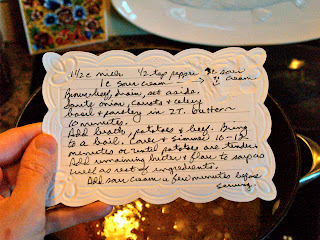 1 1/2 c milk 1/2 tsp pepper
1c sour cream → 1c sour cream
Brown beef, drain, set aside.
Saute onion, carrots & celery
basil & parsley in 2T. butter
10 minutes.
Add broth, potatoes & beef. Bring
to a boil. Cover & simmer 10-12
minutes or until potatoes are tender.
Add remaining butter & flour to soup as
well as rest of ingredients.
Add sour cream a few minutes before
serving.